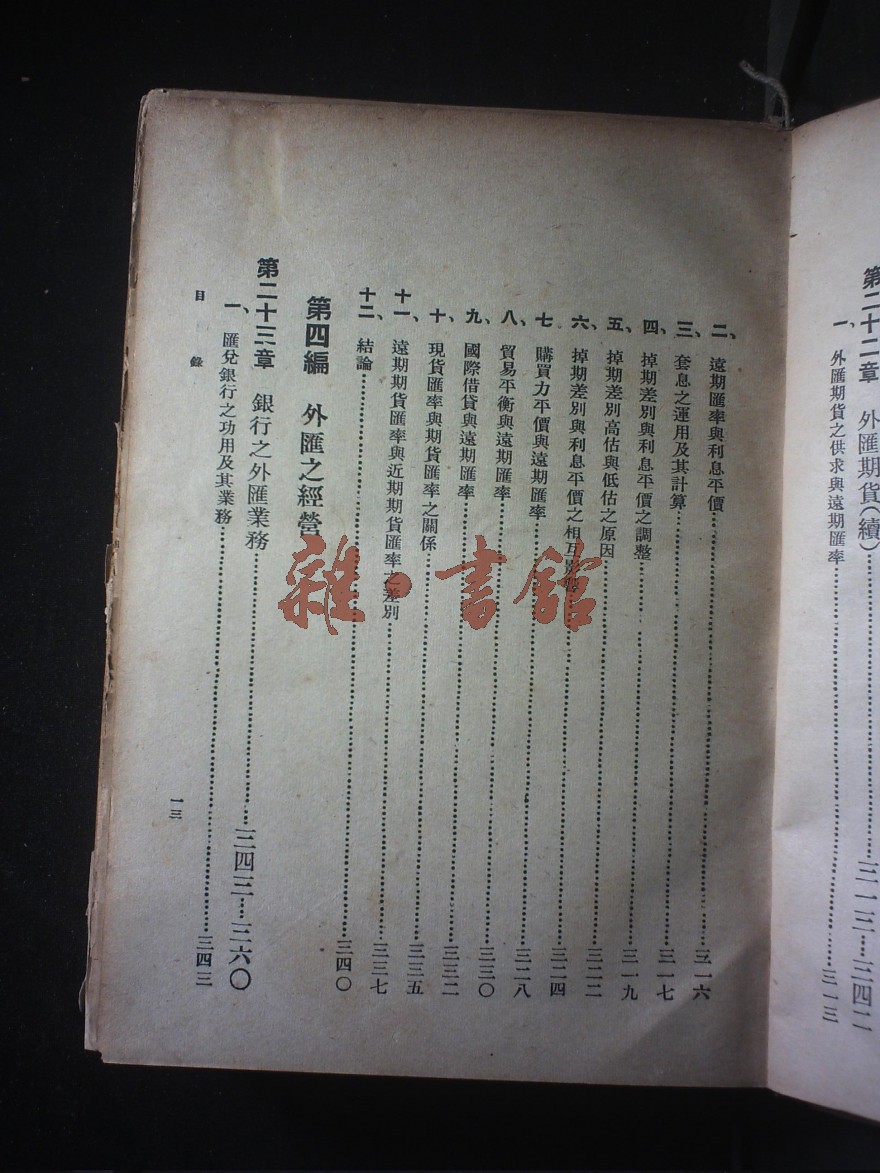 第二十二章 外匯期貨(續)……三一三—三四二
一、外匯期貨之供求與遠期匯率……三一三
二、遠期匯率與利息平價……三一六
三、套息之運用及其計算……三一七
四、掉期差別與利息平價之調整……三一九
五、掉期差別高估與低估之原因……三二二
六、掉期差別與利息平價之相互影響……三二四
七、購買力平價與遠期匯率……三二八
八、貿易平衡與遠期匯率……三三〇
九、國際借貸與遠期匯率……三三二
十、現貨匯率與期貨匯率之關係……三三五
十一、遠期期貨匯率與近期期貨匯率之差別……三三七
十二、結論……三四〇
第四編 外匯之經營
第二十三章 銀行之外匯業務……三四三—三六〇
一、匯兌銀行之功用及其業務……三四三
目錄
一三
雜·書館